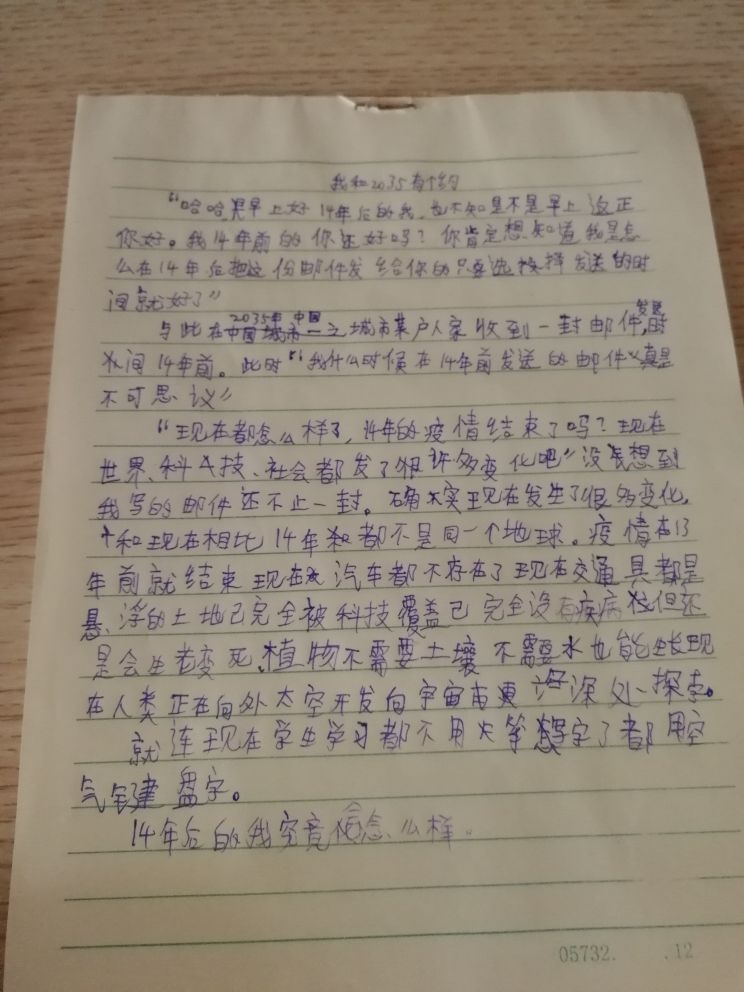 我和2035有个约
"哈哈,早上好14年后的我,也不知是不是早上 反正
你好。我14年前的你还好吗?你肯定想知道我是怎
么在14年后把这份邮件发给你的只要选择发送的时
间就好了"
与此在2035年中国一之城市某户人家收到一封邮件,发送时
间14年前。此时"我什么时候在14年前发送的邮件真是
不可思议"
"现在都怎么样了,14年的疫情结束了吗?现在
世界、科技、社会都发了很许多变化吧"没想到
我写的邮件还不止一封。确实现在发生了很多变化,
和现在相比14年都不是同一个地球。疫情在13
年前就结束现在汽车都不存在了现在交通具都是
悬浮的土地已完全被科技覆盖已完全没有疾病但还
是会生老变死,植物不需要土壤不需要水也能生长现
在人类正在向外太空开发向宇宙更深处探索。
就连现在学生学习都不用笔写字了都用空
气键盘字。
14年后的我究竟会怎么样。
05732. .12